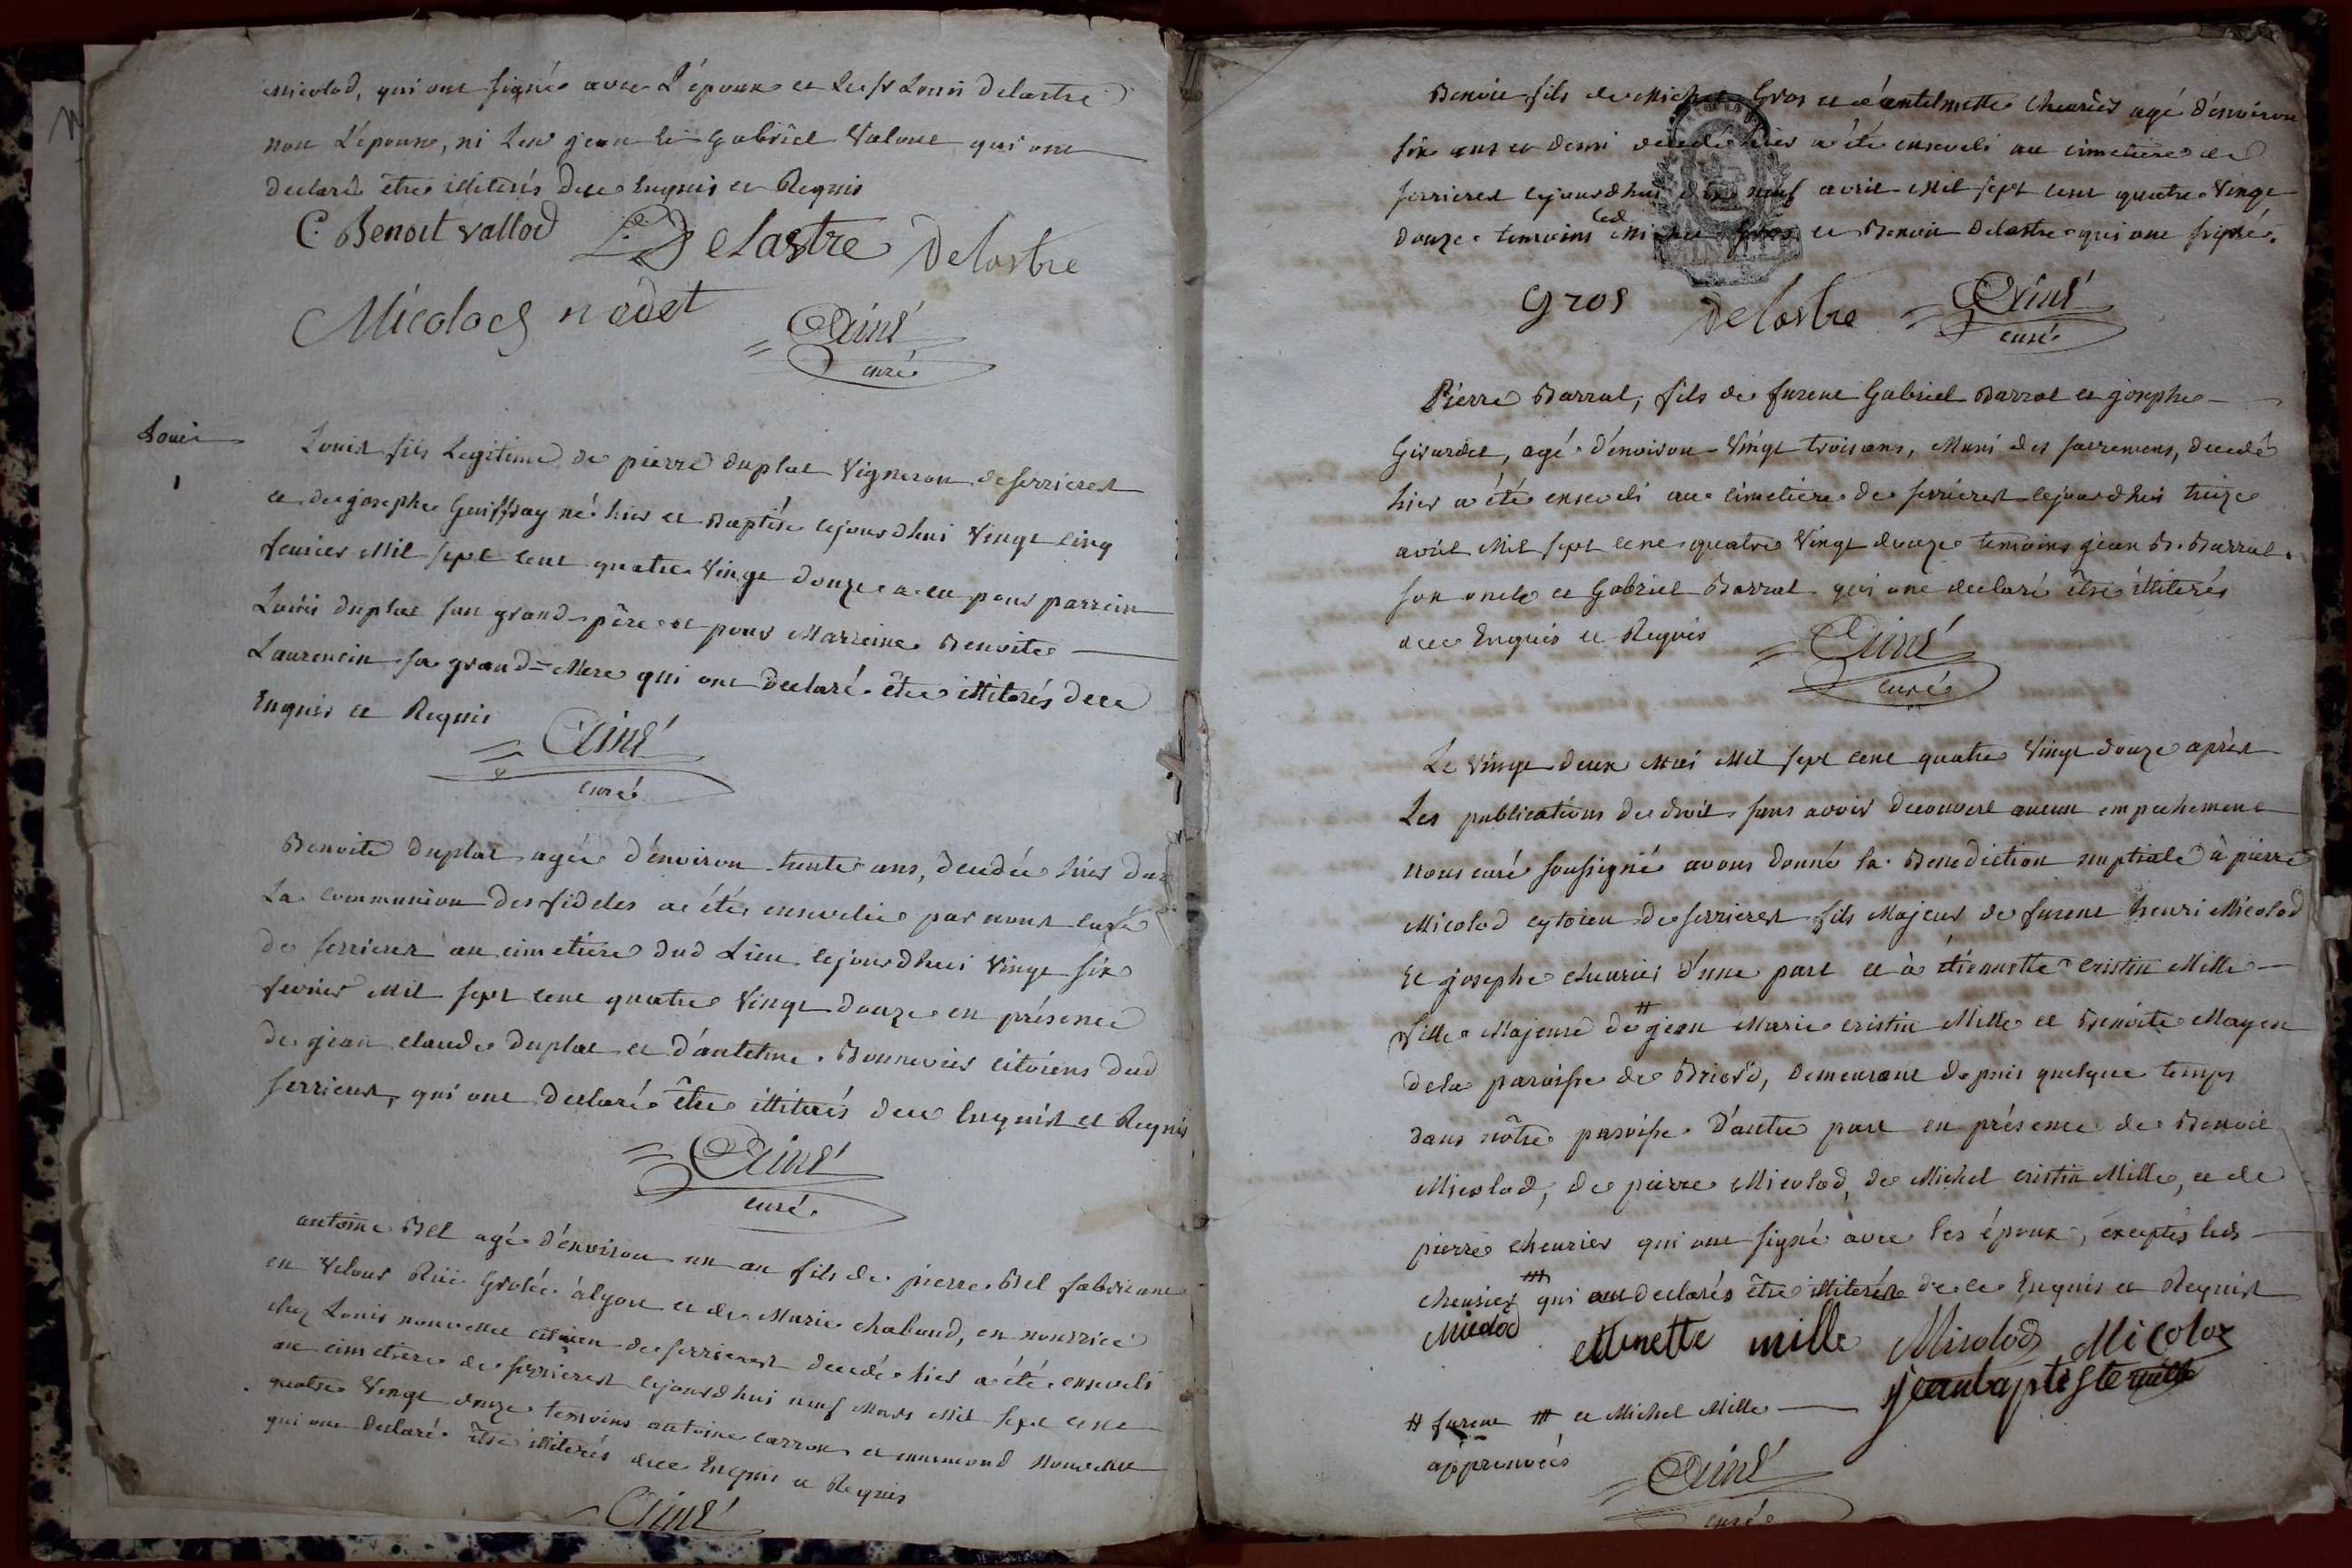 Micolod, qui ont signé avec L'époux et Le sr Louis Delastre
non L'épouse, ni Les jean et Gabriel Valove qui ont
declaré être illiterés dece Enquis et Requis
C. Benoit vallod Delastre Delastre
Micolod cadet Ainé
curé
Louis
1
Louis fils Legitime de pierre duplat Vigneron de serrieres
et de josephe Guiffray né hier et Baptisé cejourdhui Vingt cinq
fevrier Mil sept cent quatre Vingt douze a eu pour parrein
Louis duplat son grand-père et pour Marreine Benoite
Laurencin sa grand=Mere qui ont declaré être illiterés dece
Enquis et Requis
Ainé
curé
Benoite duplat agée d'environ trente ans, decedée hier dans
La communion des fideles a été ensevelie par nous curé
de serrieres au cimetiere dud Lieu cejourdhui Vingt six
fevrier Mil sept cent quatre Vingt douze en présence
de jean claude duplat et d'antelme Bonnevier citoiens dud
serrieres, qui ont declaré être illiterés dece Enquis et Requis
Ainé
curé
antoine Bel agé d'environ un an fils de pierre Bel fabricant
en Velour Rüe Grolée à lyon et de Marie chaboud, en nourrice
chez Louis nouvellet citoien de serrieres decedé hier a été enseveli
au cimetiere de serrieres cejourdhui neuf Mars Mil sept cent
quatre Vingt douze temoins antoine carron et nouvellet
qui ont declaré être illiterés dece Enquis et Requis
Ainé
Benoit fils de Michel Gros et d'antelmette cheurier agé d'environ
six ans et demi decedé hier a été enseveli au cimetiere de
serrieres cejourdhui dix neuf avril Mil sept cent quatre Vingt
douze temoins led Michel Gros et Benoit Delastre qui ont signé.
Gros Delastre Ainé
curé
Pierre Barral, fils de furent Gabriel Barral et josephe
Girardet, agé d'environ Vingt trois ans, Muni des sacremens, decedé
hier a été enseveli au cimetiere de serrieres cejourdhui treize
avril Mil sept cent quatre Vingt douze temoins jean B. Barral
son oncle et Gabriel Barral qui ont declaré être illiterés
dece Enquis et Requis Ainé
curé
Le Vingt deux Mai Mil sept cent quatre Vingt douze après
Les publications de droit sans avoir decouvert aucun empechement
nous curé soussigné avons donné la Benediction nuptiale à pierre
Micolod cytoien de serrieres fils Majeur de furent henri Micolod
et josephe cheurier d'une part et à étiennette cristin Mille
fille Majeure de # jean Marie cristin Mille et Benoite Mayen
dela paroisse de Briord, demeurant depuis quelque temps
dans nôtre paroisse d'autre part en présence de Benoit
Micolod, de pierre Micolod, de Michel cristin Mille, et de
pierre cheurier qui ont signé avec les époux, exceptés led
cheurier ## qui ont declarés être illiterés dece Enquis et Requis
Micolod Etienette mille Micolod Micolod
jean baptiste mille
# furent ## et Michel Mille
approuvés
Ainé
curé